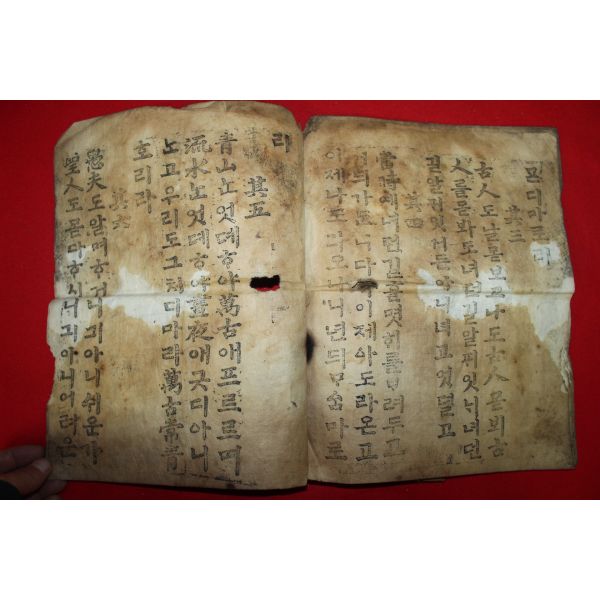 其三
古人도날몯보고나도古人몯뵈古
人를몯봐도녀던길알ᄑᆡ잇ᄂᆡ녀던
길알ᄑᆡ잇거든아니녀고엇뎔고
其四
當時예녀던길흘몃ᄒᆡ를ᄇᆞ려두고
가ᄃᆞᆫ니다가이제아도라온고
이제나도라오나니년듸ᄆᆞᄉᆞᆷ마로
리
其五
青山ᄂᆞᆫ엇뎨ᄒᆞ야萬古애프르르며
流水ᄂᆞᆫ엇뎨ᄒᆞ야晝夜애긋디아니
ᄂᆞᆫ고우리도그치디마라萬古常青
호리라
其六
愚夫도알며ᄒᆞ거니긔아니쉬운가
聖人도몯다ᄒᆞ시니긔아니어려온